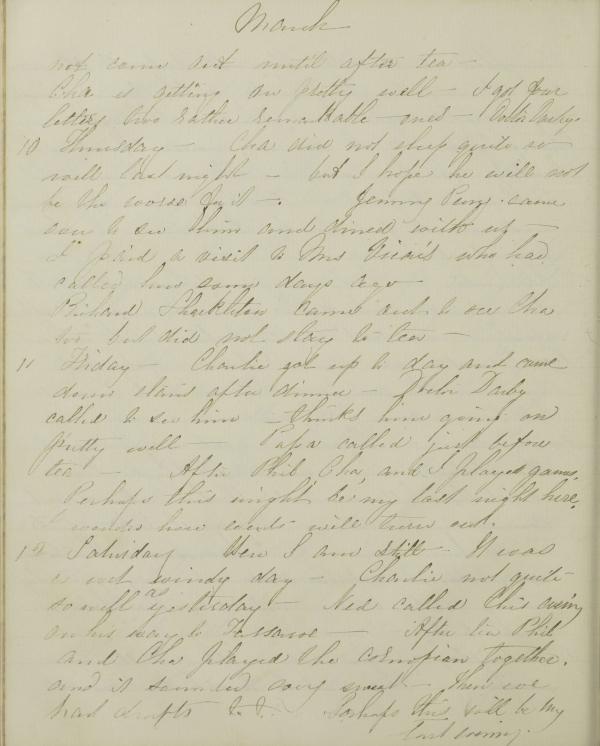 March
not come out until after tea —
Cha is getting on pretty well — I got four
letters two rather remarkable ones — Doctor Darby.
10 Thursday — Cha did not sleep quite so
well last night — but I hope he will not
be the worse for it —. Jemmy Penny came
out to see him and dined with us —
I paid a visit to Mrs who had
called here some days ago
Richard Shackleton came out to see Cha
too but did not stay to tea —
11 Friday — Charlie got up to day and came
down stairs after dinner — Doctor Darby
called to see him — thinks him going on
pretty well — Papa called just before
tea — After Phil, Cha, and I played games,
Perhaps this might be my last night here,
I wonder how events will turn out.
12 Saturday Here I am still — It was
a wet windy day — Charlie not quite
so well as yesterday — Ned called this evening
on his way to — After tea Phil
and Cha played the cornopian together.
and it sounded very sweet — Then we
had drafts &c &c. Perhaps this will be my
last evening.